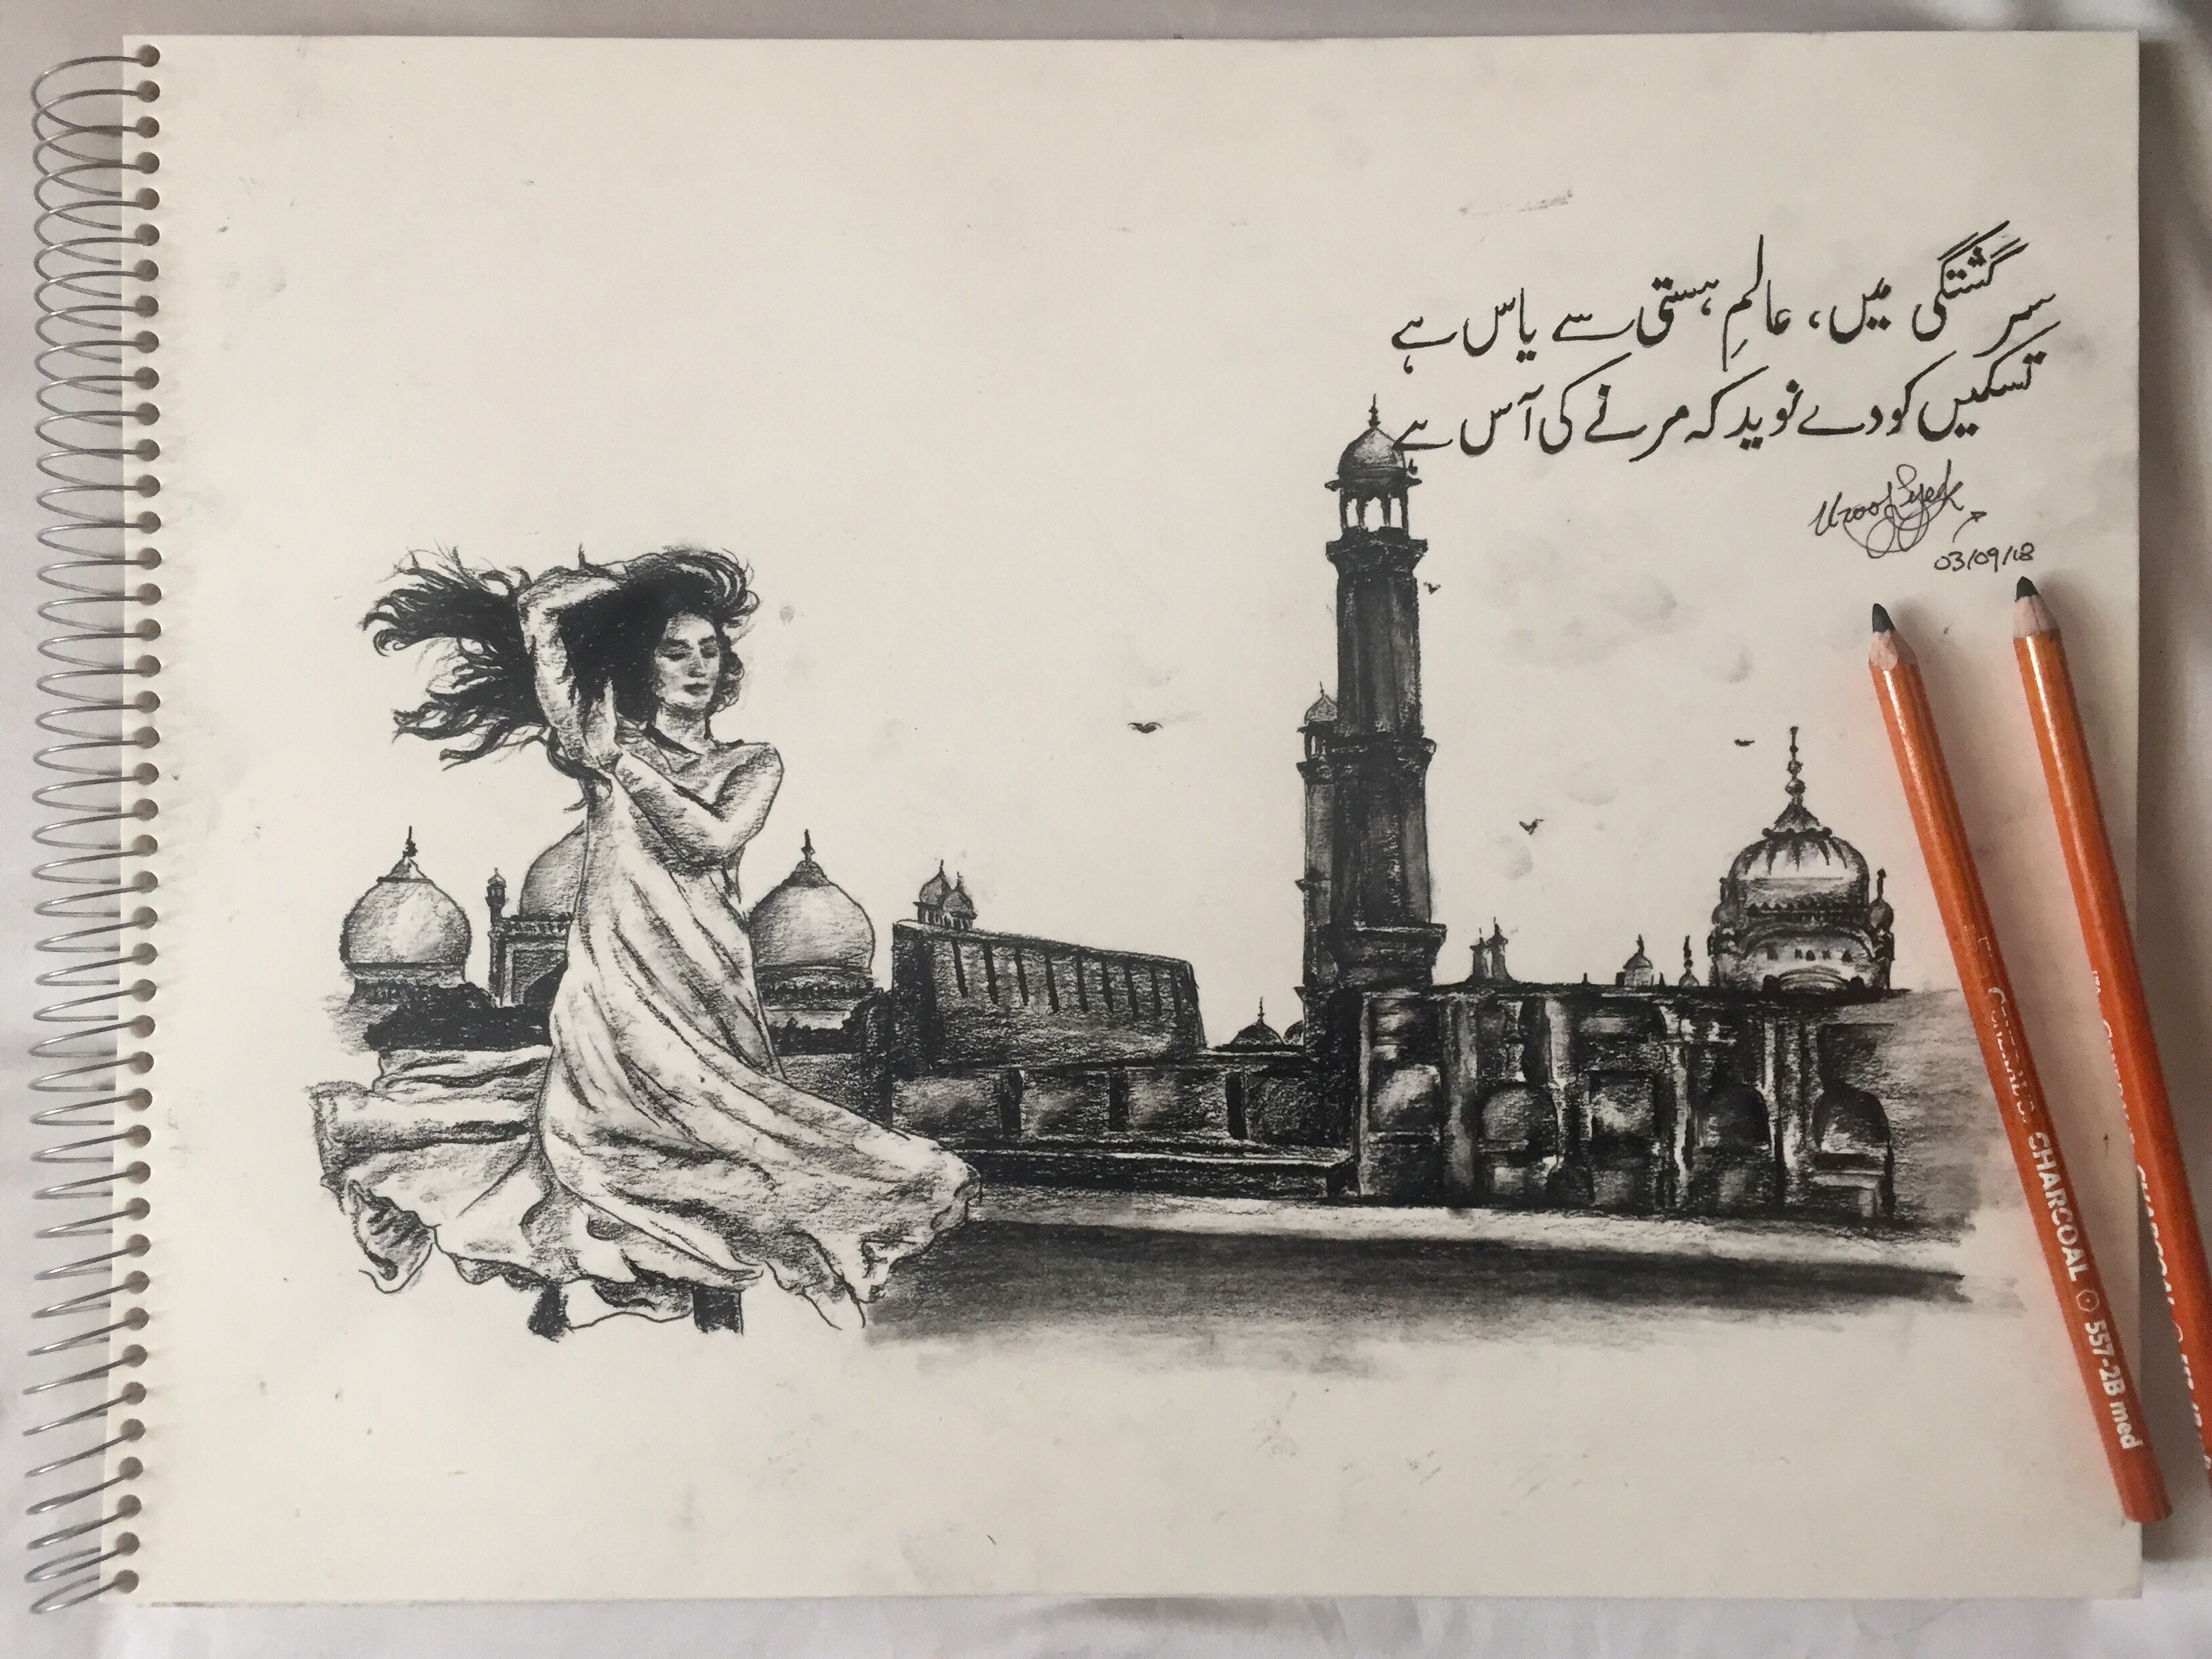 سر گشتگی میں، عالمِ ہستی سے یاس ہے
تسکیں کو دے نوید کہ مرنے کی آس ہے
Urooj Syed
03/09/18
GENERAL'S CHARCOAL 557-2B med